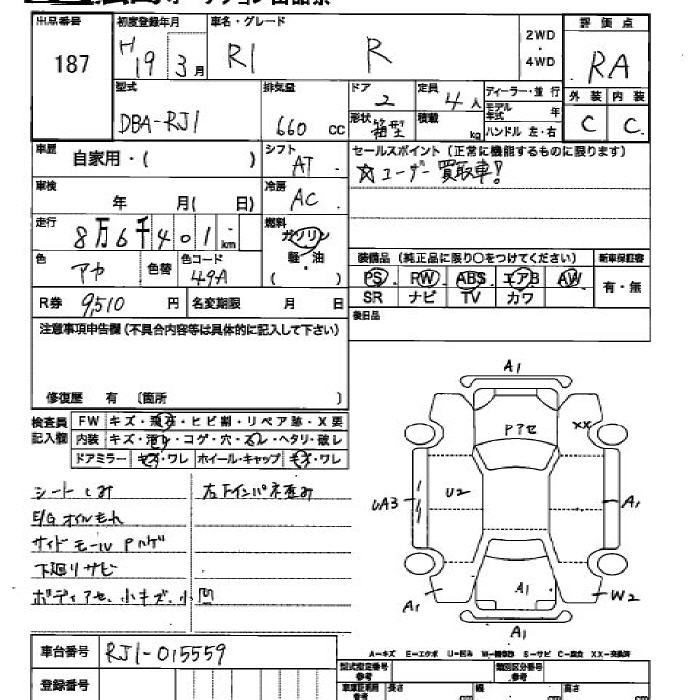 出品番号
187
初度登録年月
H 19 3月
車名・グレード
R1 R
2WD
・
4WD
評価点
RA
型式
DBA-RJ1
排気量
660 cc
ドア
2
定員
4人
ディーラー・並行
モデル年式 年
ハンドル 左・右
形状
箱型
積載
kg
外装 内装
C C
車歴
自家用・( )
シフト
AT
セールスポイント(正常に機能するものに限ります)
☆ユーザー買取車!
車検
年 月( 日)
冷房
AC
走行
8万6千401km
燃料
ガソリン
軽・油
( )
色
アカ
色替
色コード
49A
装備品(純正品に限り○をつけてください)
新車保証書
PS RW ABS エアB AW
SR ナビ TV カワ
有・無
R券 9,510 円
名変期限 月 日
後日品
注意事項申告欄(不具合内容等は具体的に記入して下さい)
修復歴 有 〔箇所 〕
検査員
記入欄
FW キズ・飛石・ヒビ割・リペア跡・X要
内装 キズ・汚れ・コゲ・穴・スレ・ヘタリ・破レ
ドアミラー キズ・ワレ ホイール・キャップ キズ・ワレ
シートしみ
左下インパネ歪み
E/Gオイルもれ
サイドモールPハゲ
下廻りサビ
ボディアセ、小キズ、小凹
A1
Pアセ
XX
UA3
U2
A1
A1
A1
W2
A1
A-キズ E-エクボ U-凹み W-補修跡 S-サビ C-腐食 XX-交換済
車台番号
RJ1-015559
登録番号
型式指定番号
参考
類別区分番号
参考
車庫証明用
参考
長さ
cm
幅
cm
高さ
cm